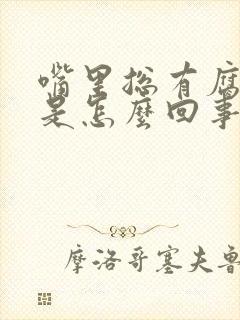 嘴里总有腐
是怎麽回事
摩洛哥塞夫鲁